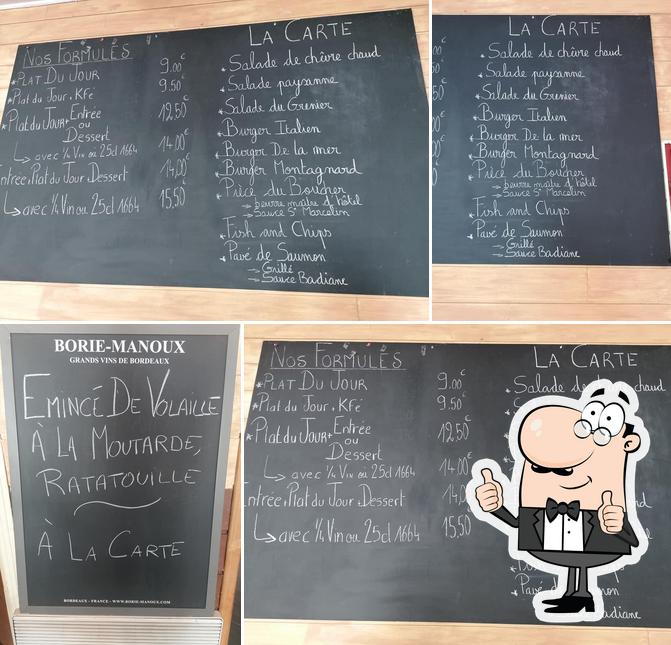 Nos Formules
* Plat Du Jour 9.00€
* Plat du Jour + Kfé 9.50€
* Plat du Jour + Entrée 12,50€
ou
Dessert
↳ avec ¼ Vin ou 25cl 1664 14,00€
Entrée + Plat du Jour + Dessert 14,00€
↳ avec ¼ Vin ou 25cl 1664 15,50€
La Carte
* Salade de chèvre chaud
* Salade paysanne
* Salade du Grenier
* Burger Italien
* Burger De la mer
* Burger Montagnard
* Pièce du Boucher
→ beurre maître d'hôtel
→ Sauce St Marcelin
* Fish and Chips
* Pavé de Saumon
→ Grillé
→ Sauce Badiane
La Carte
* Salade de chèvre chaud
* Salade paysanne
* Salade du Grenier
* Burger Italien
* Burger De la mer
* Burger Montagnard
* Pièce du Boucher
→ beurre maître d'hôtel
→ Sauce St Marcelin
* Fish and Chips
* Pavé de Saumon
→ Grillé
→ Sauce Badiane
BORIE-MANOUX
GRANDS VINS DE BORDEAUX
Emincé De Volaille
À La Moutarde,
Ratatouille
À La Carte
BORDEAUX - FRANCE - WWW.BORIE-MANOUX.COM
Nos Formules
* Plat Du Jour 9.00€
* Plat du Jour + Kfé 9.50€
* Plat du Jour + Entrée 12,50€
ou
Dessert
↳ avec ¼ Vin ou 25cl 1664 14,00€
Entrée + Plat du Jour + Dessert 14,
↳ avec ¼ Vin ou 25cl 1664 15,50
La Carte
* Salade de chaud
Pavé